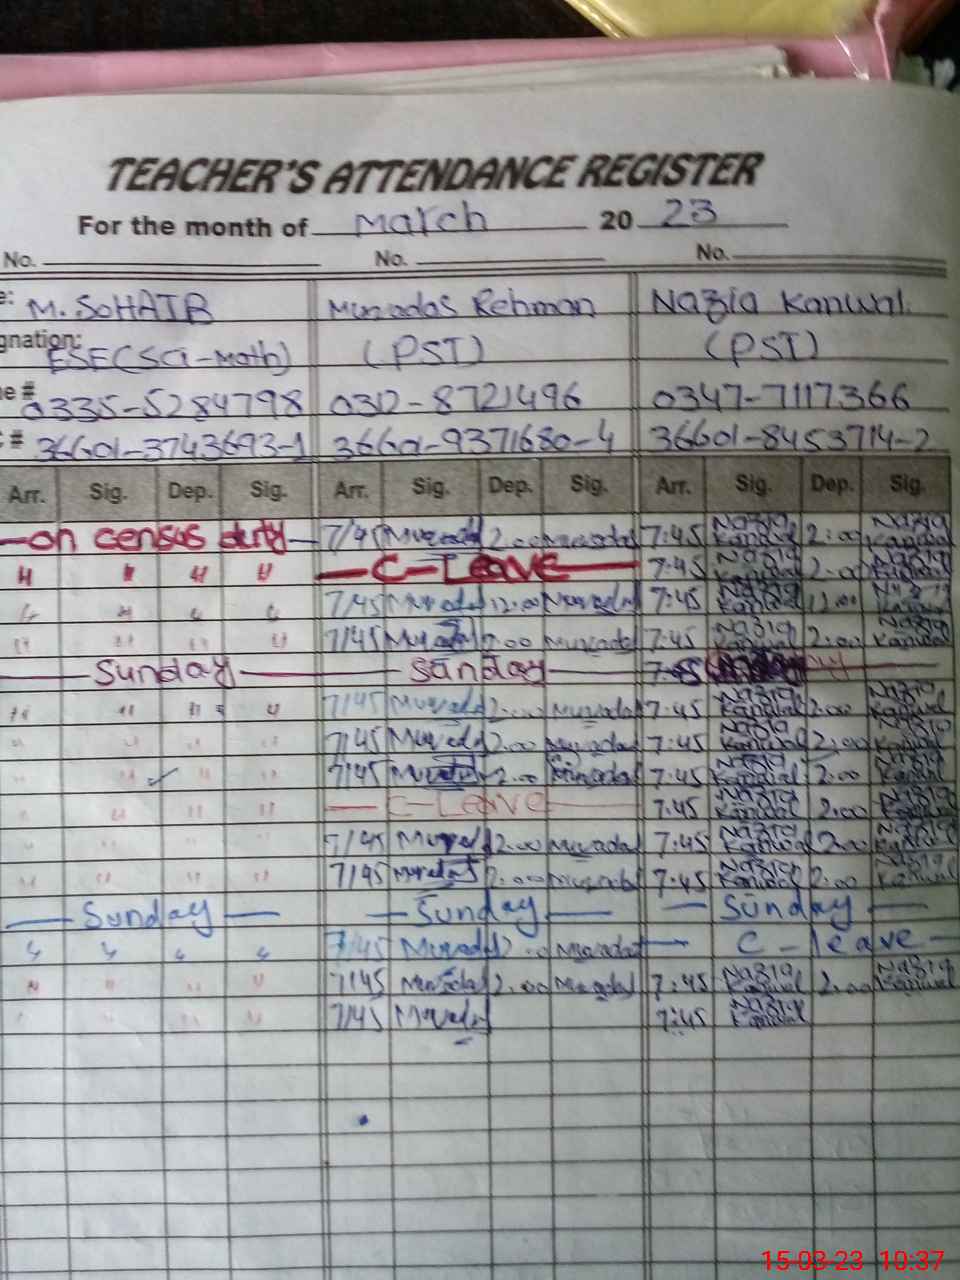 TEACHER'S ATTENDANCE REGISTER
For the month of March 20 23
No. No. No.
e: M. SOHAIB Muradas Rehman Nazia Kanwal.
gnation: ESE(Sci-Math) (PST) (PST)
e # 0335-5284798 0312-8721496 0347-7117366
# 36601-3743693-1 36601-9371680-4 36601-8453714-2
Arr. Sig. Dep. Sig. Arr. Sig. Dep. Sig. Arr. Sig. Dep. Sig.
on census duty 7/45 2.00 7:45 Nazia Kanwal 2:00 Nazia Kanwal
" " " " C-Leave 7:45 Nazia Kanwal 2.00 Nazia Kanwal
" " " " 7/45 12.00 7:45 Nazia Kanwal 12.00 Nazia Kanwal
" " " " 7/45 2.00 7:45 Nazia Kanwal 2:00 Nazia Kanwal
Sunday Sunday 7:45
" " " " 7/45 2.00 7:45 Nazia Kanwal 2.00 Nazia Kanwal
" " " " 7/45 2.00 7:45 Nazia Kanwal 2.00 Nazia Kanwal
" " " " 7/45 2.00 7:45 Nazia Kanwal 2.00 Nazia Kanwal
" " " " C-Leave 7.45 Nazia Kanwal 2.00 Nazia Kanwal
" " " " 7/45 2.00 7:45 Nazia Kanwal 2.00 Nazia Kanwal
" " " " 7/45 2.00 7:45 Nazia Kanwal 2.00 Nazia Kanwal
Sunday Sunday Sunday
" " " " 7/45 C-leave
" " " " 7/45 2.00 7:45 Nazia Kanwal 2.00 Nazia Kanwal
" " " " 7/45 7:45 Nazia Kanwal
15-03-23 10:37